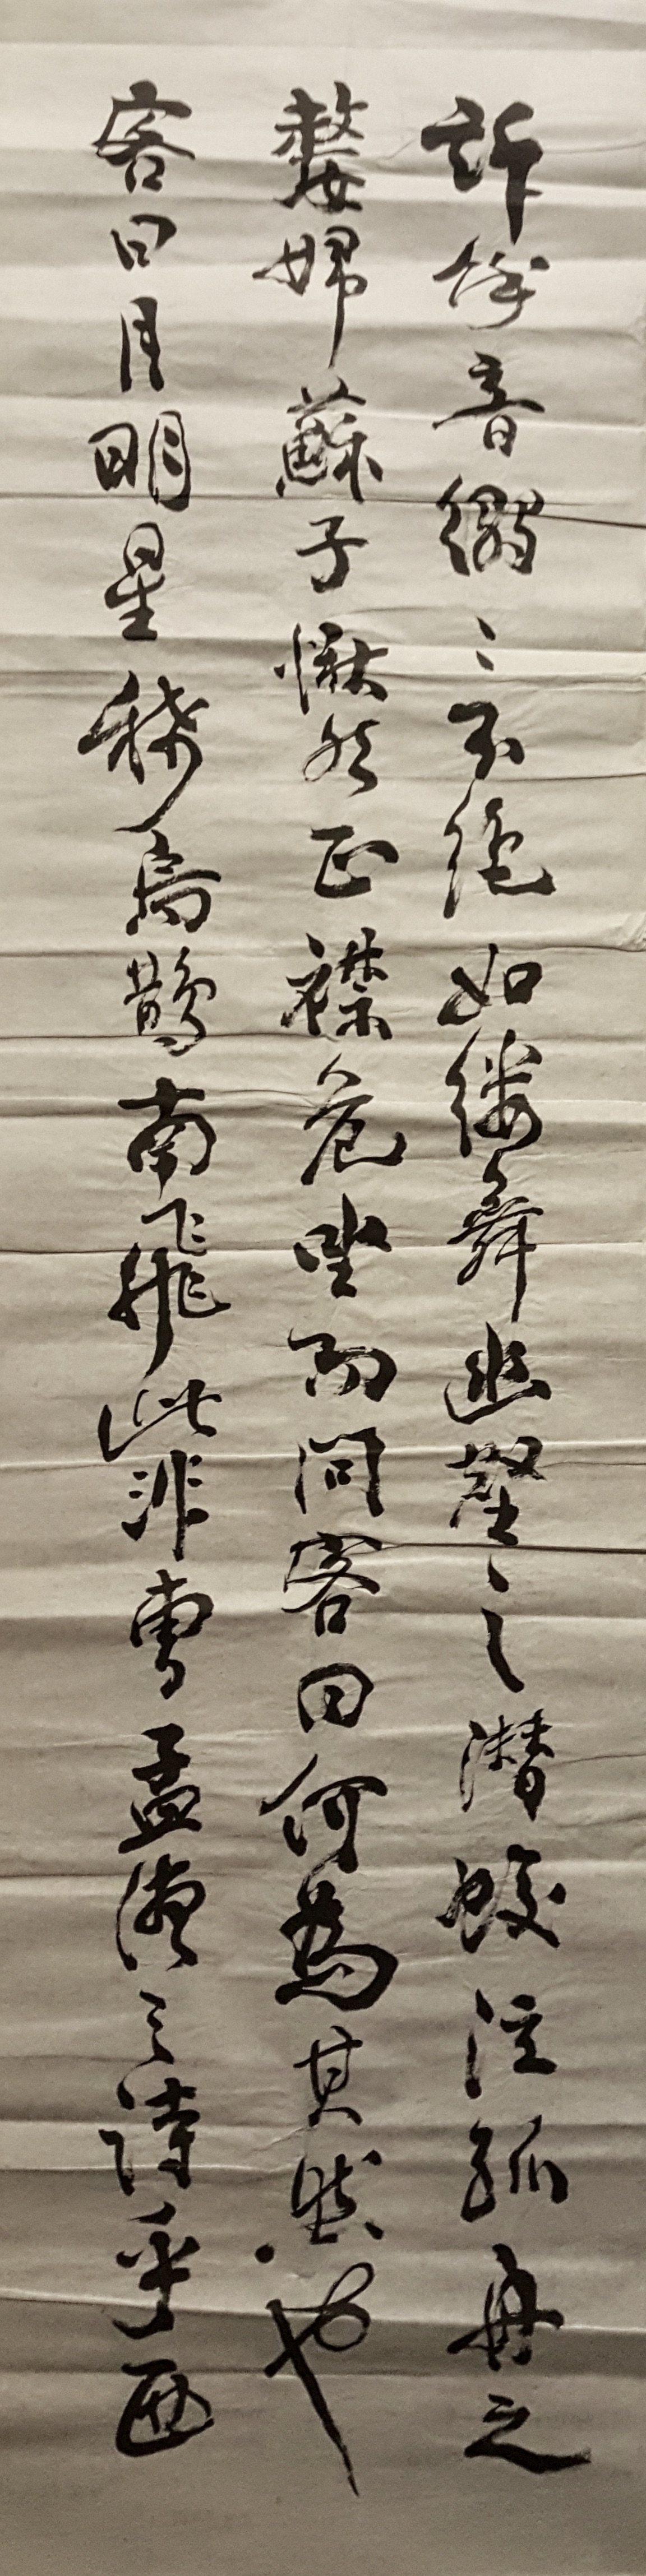 訴餘音嫋〻不絶如縷舞幽壑之潛蛟泣孤舟之
嫠婦蘇子愀然正襟危坐而問客曰何為其然也
客曰月明星稀烏鵲南飛此非曹孟德之詩乎西